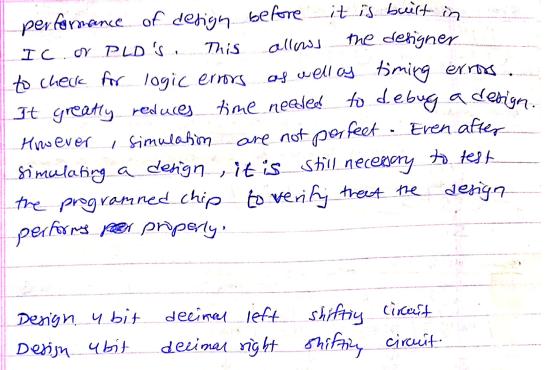 performance of design before it is built in
IC or PLD's. This allows the designer
to check for logic errors as well as timing errors.
It greatly reduces time needed to debug a design.
However, simulation are not perfect. Even after
simulating a design, it is still necessary to test
the programned chip to verify that the design
performs properly.
Design 4 bit decimal left shifting circuit
Design 4bit decimal right shifting circuit.